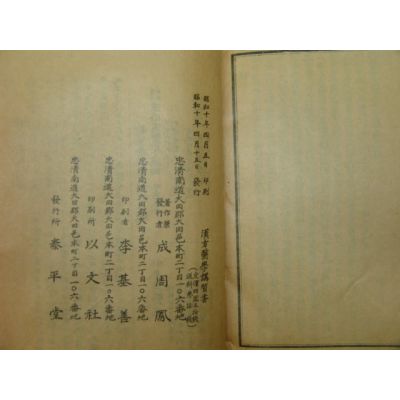 昭和十年四月五日 印刷
昭和十年四月十五日 發行
漢方醫學講習書
忠清南道大田郡大田邑本町二丁目一〇六番地
著作兼發行者 成周鳳
忠清南道大田郡大田邑本町二丁目一〇六番地
印刷者 李基善
忠清南道大田郡大田邑本町二丁目一〇六番地
印刷所 以文社
忠清南道大田郡大田邑本町二丁目一〇六番地
發行所 泰平堂